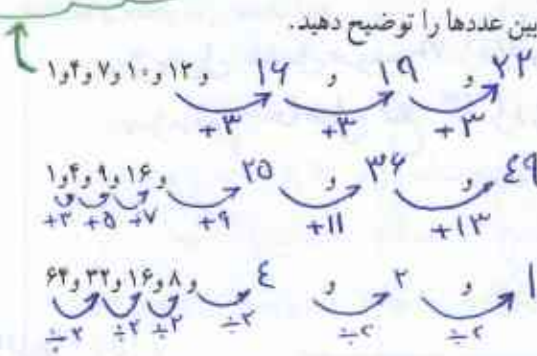 بین عددها را توضیح دهید.
۱و۴و۷و۱۰و۱۳و ۱۶ و ۱۹ و ۲۲
+۳ +۳ +۳
۱و۴و۹و۱۶و ۲۵ و ۳۶ و ۴۹
+۳ +۵ +۷ +۹ +۱۱ +۱۳
۶۴و۳۲و۱۶و۸و ۴ و ۲ و ۱
÷۲ ÷۲ ÷۲ ÷۲ ÷۲ ÷۲